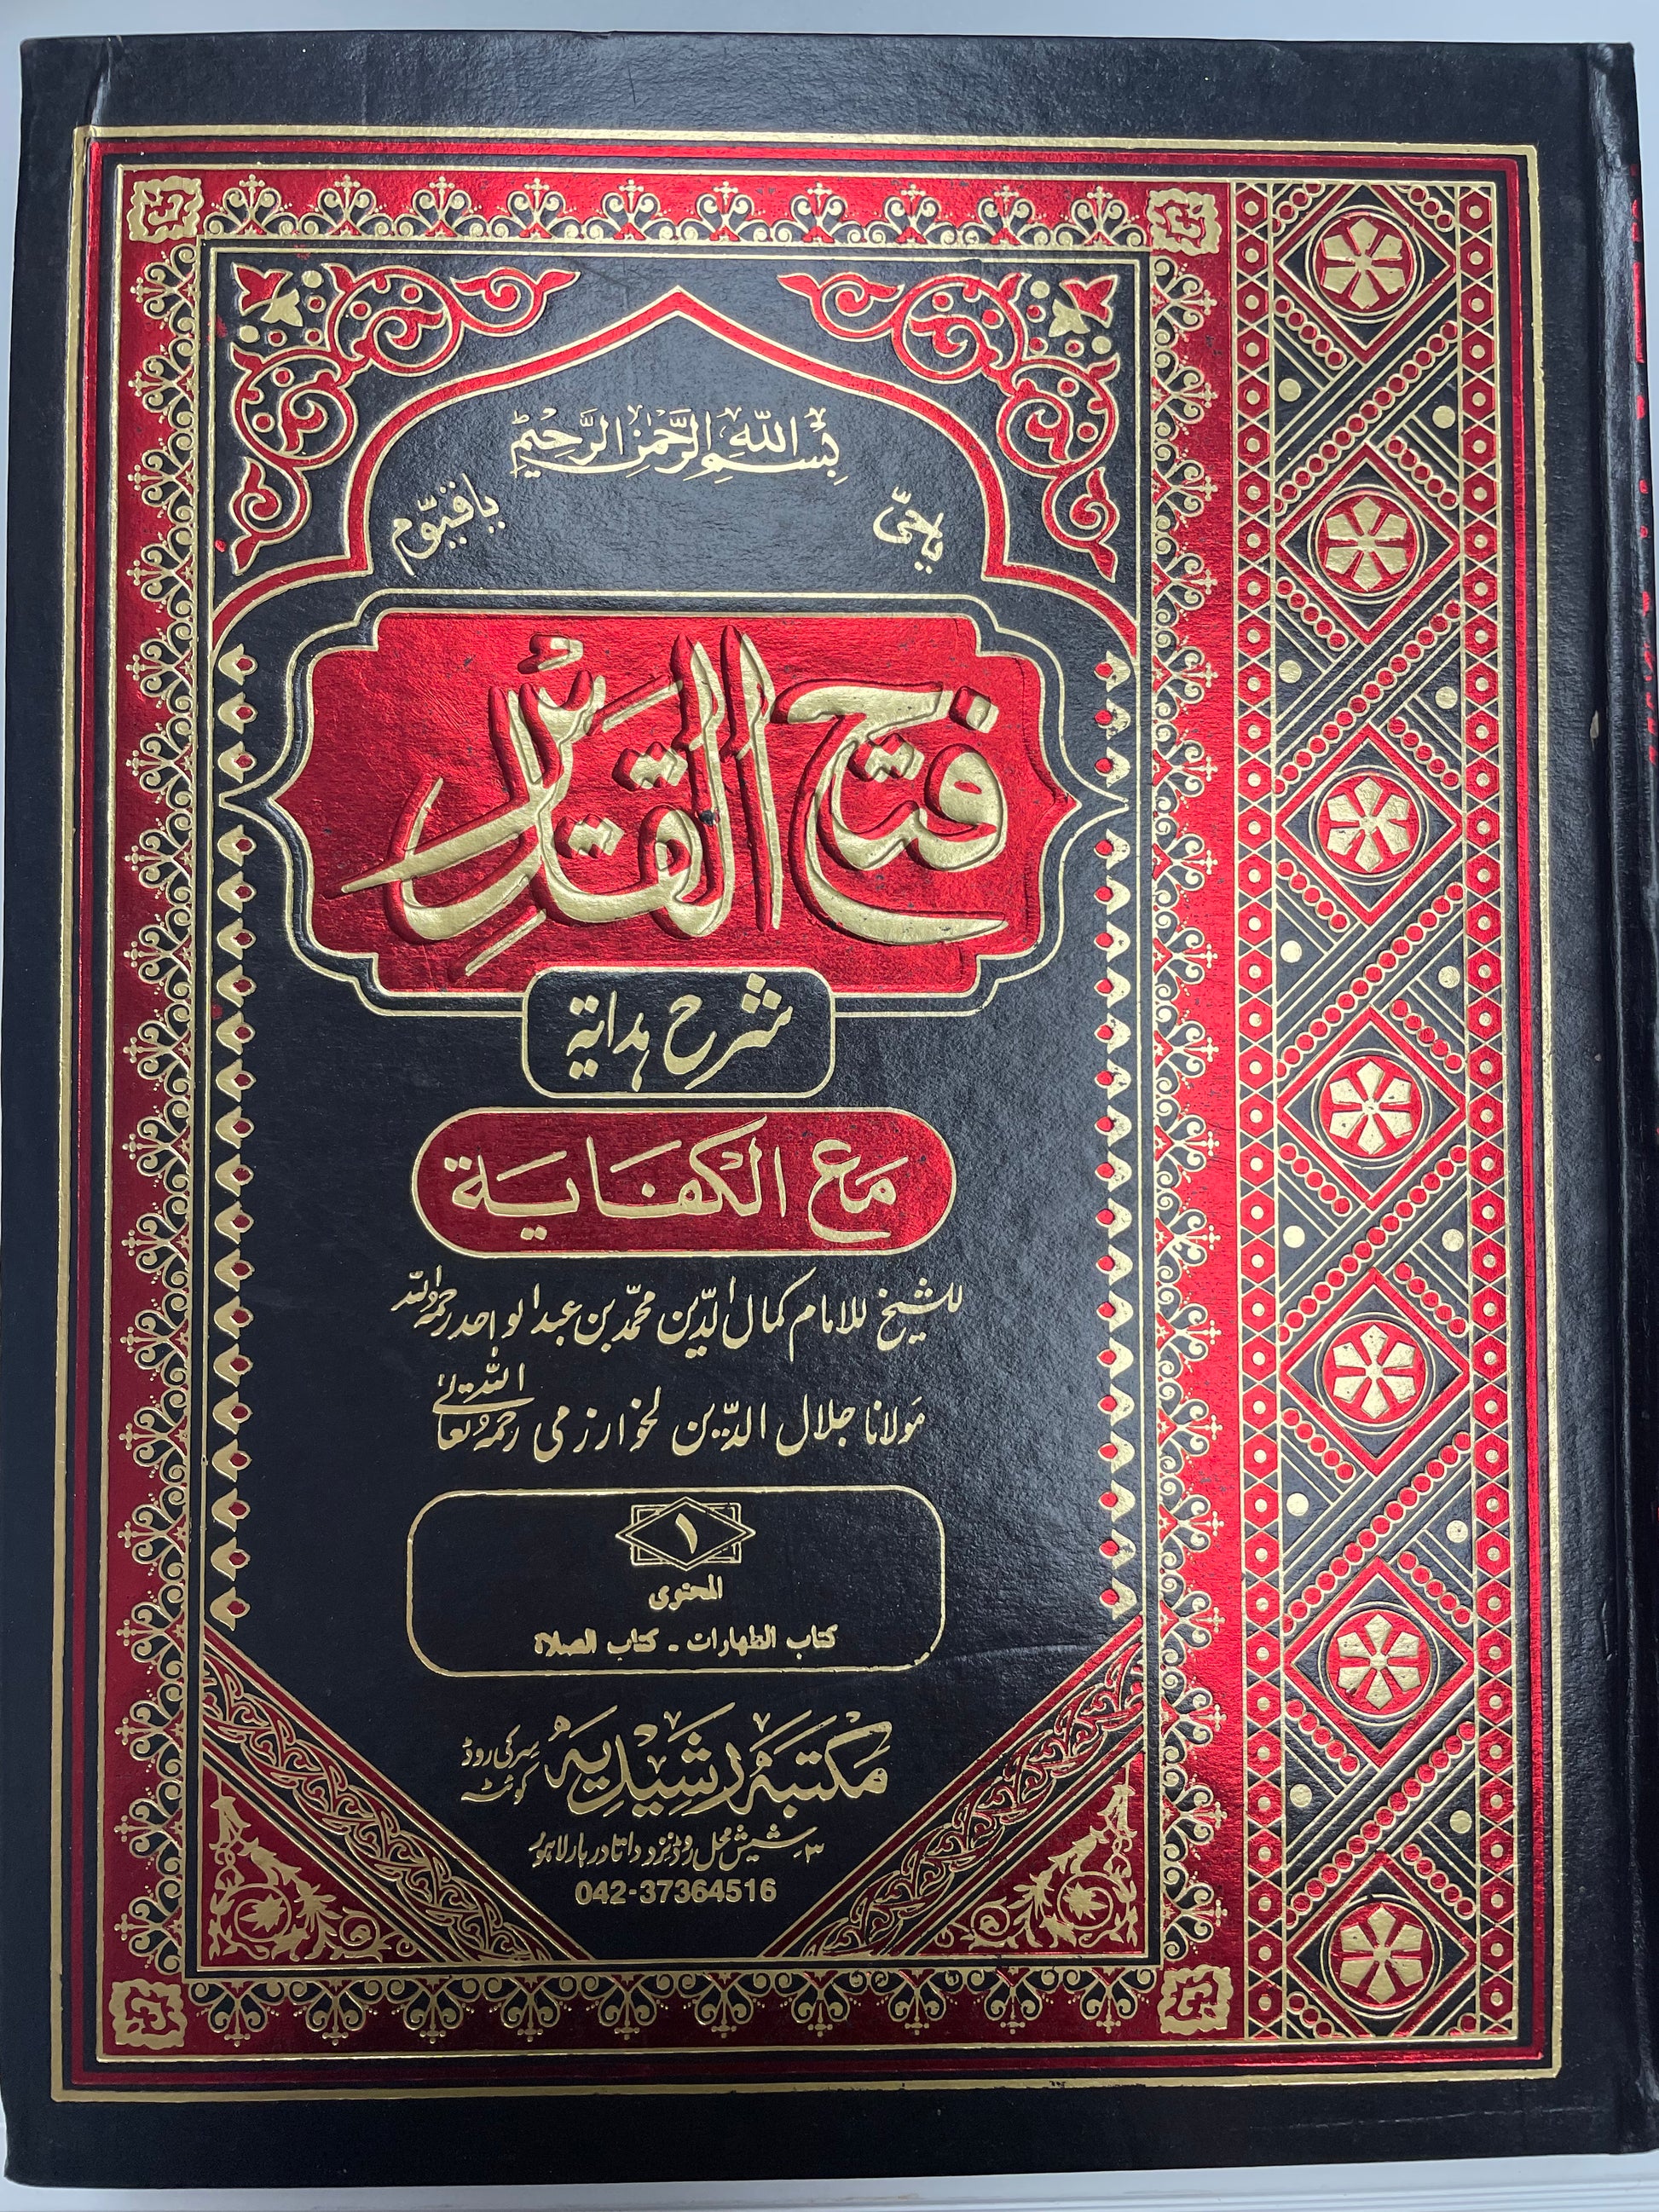 بِسْمِ اللّٰهِ الرَّحْمٰنِ الرَّحِيْمِ
ياحيّ ياقيّوم
فتح القدير
شرح ہدایۃ
مَع الكفَايَة
للشیخ للامام کمال الدّین محمّد بن عبد الواحد رحمہ اللہ
مولانا جلال الدّین لخوارزمی رحمہُ اللہ تعالٰی
١
المحتوى
كتاب الطهارات - كتاب الصلاة
مکتبہ رشیدیہ سرکی روڈ کوئٹہ
۳۔ شیش محل روڈ نزد داتا دربار لاہور
042-37364516